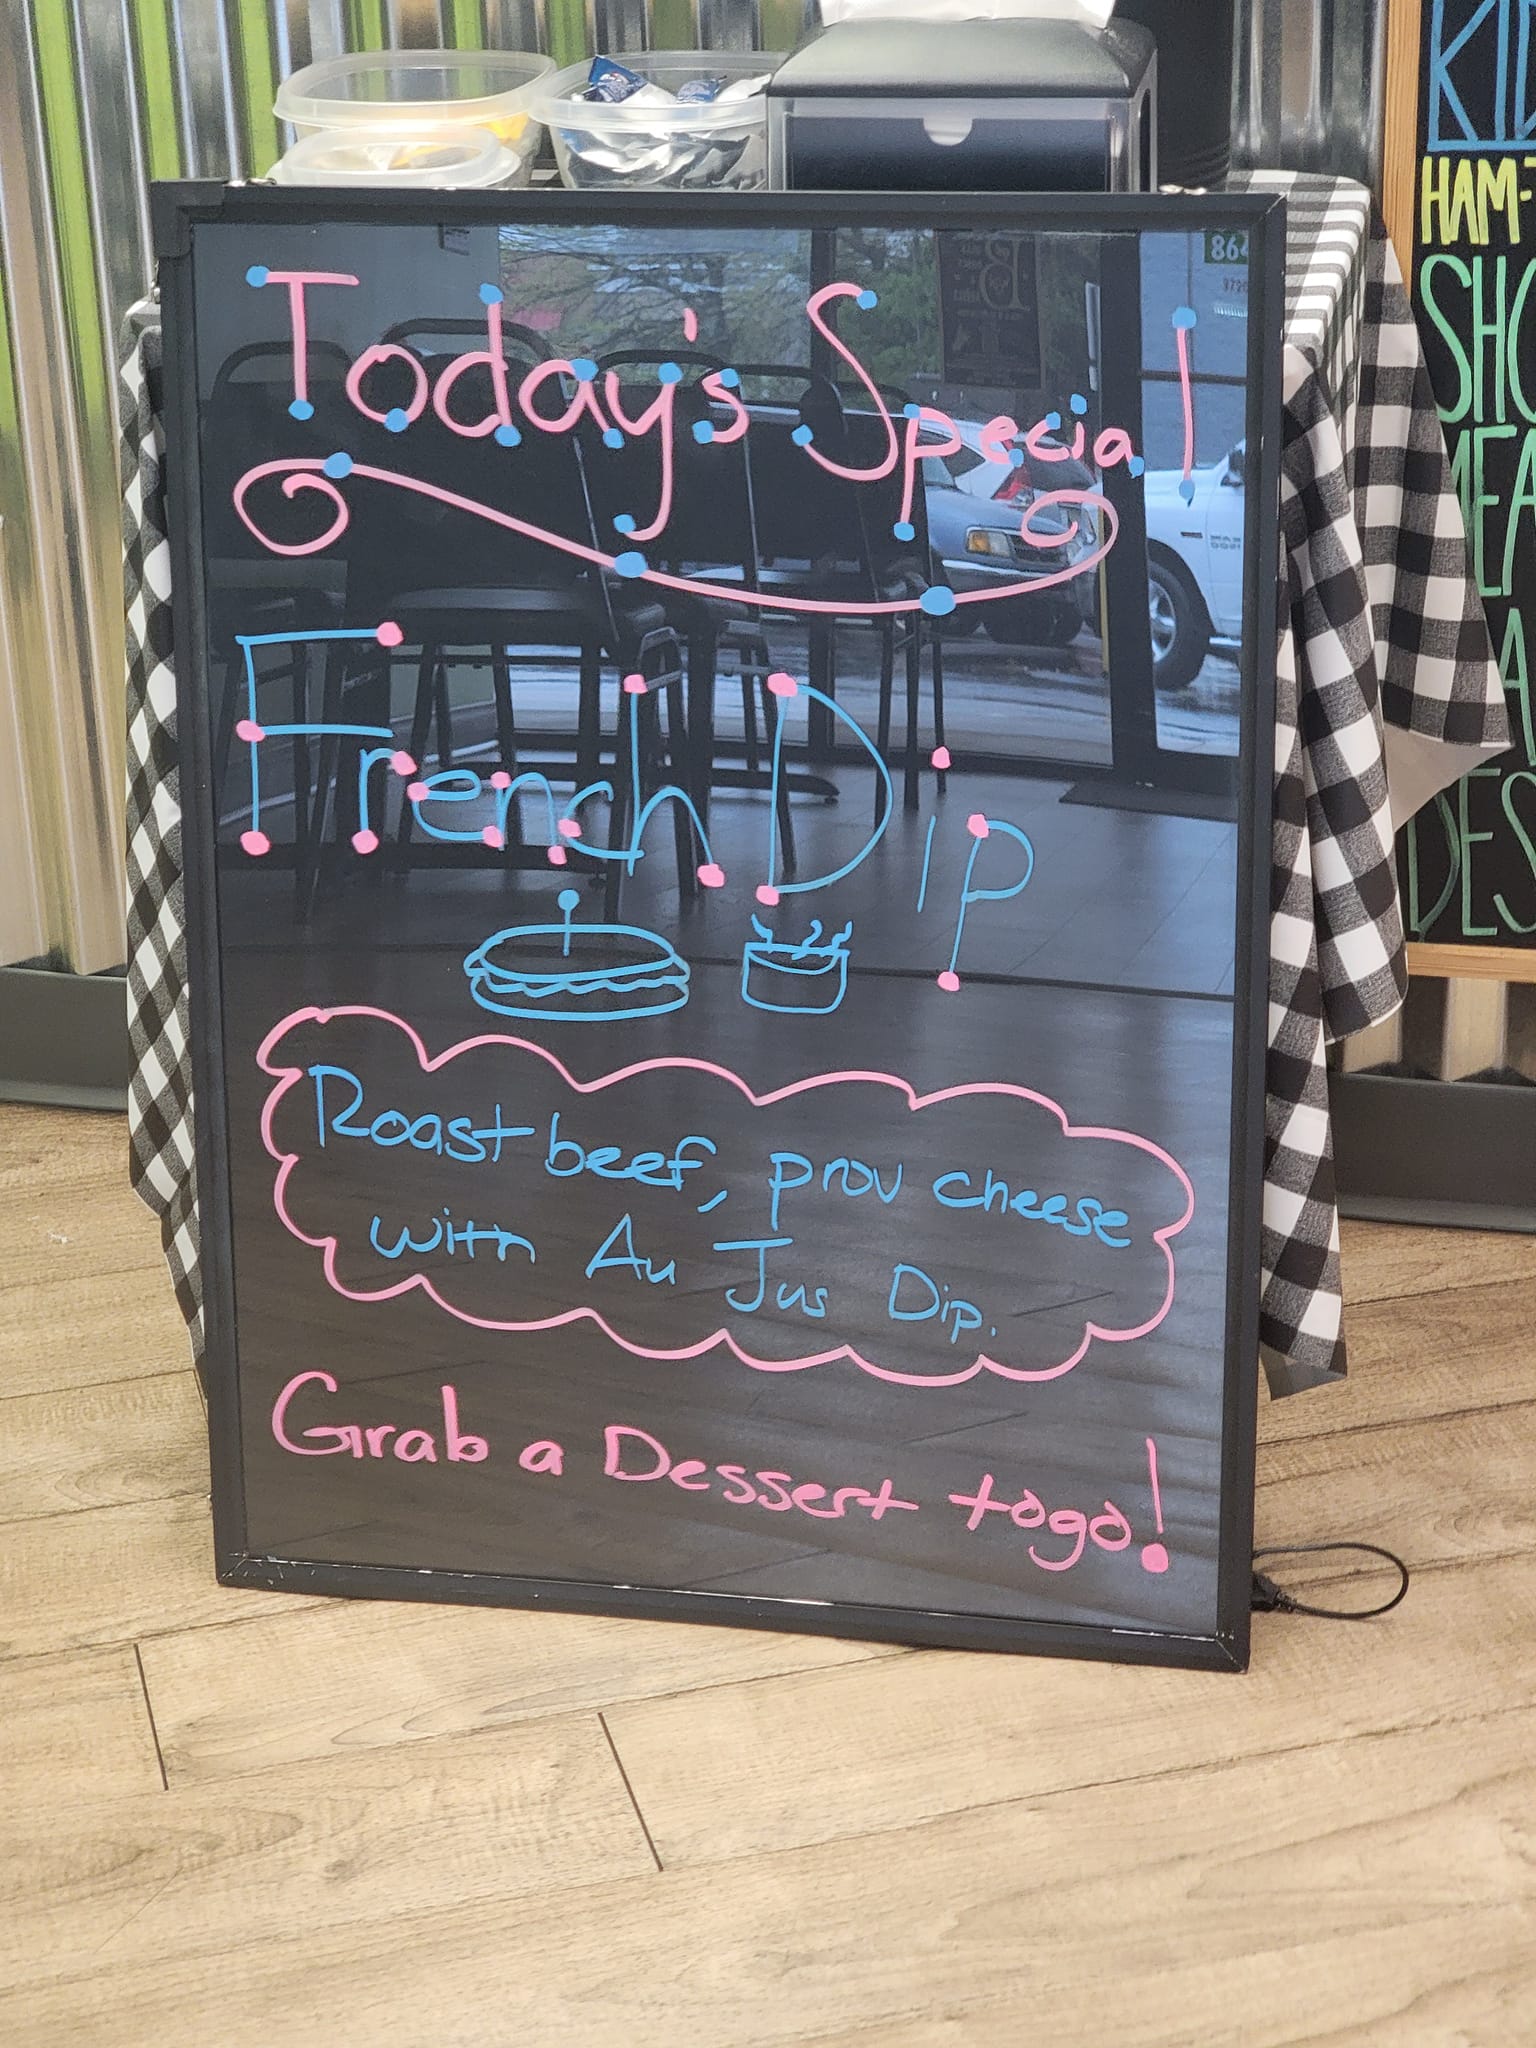 Today's Special
French Dip
Roast beef, prov cheese
with Au Jus Dip.
Grab a Dessert togo!
KID
HAM-
SHO
MEA
A
DES
864